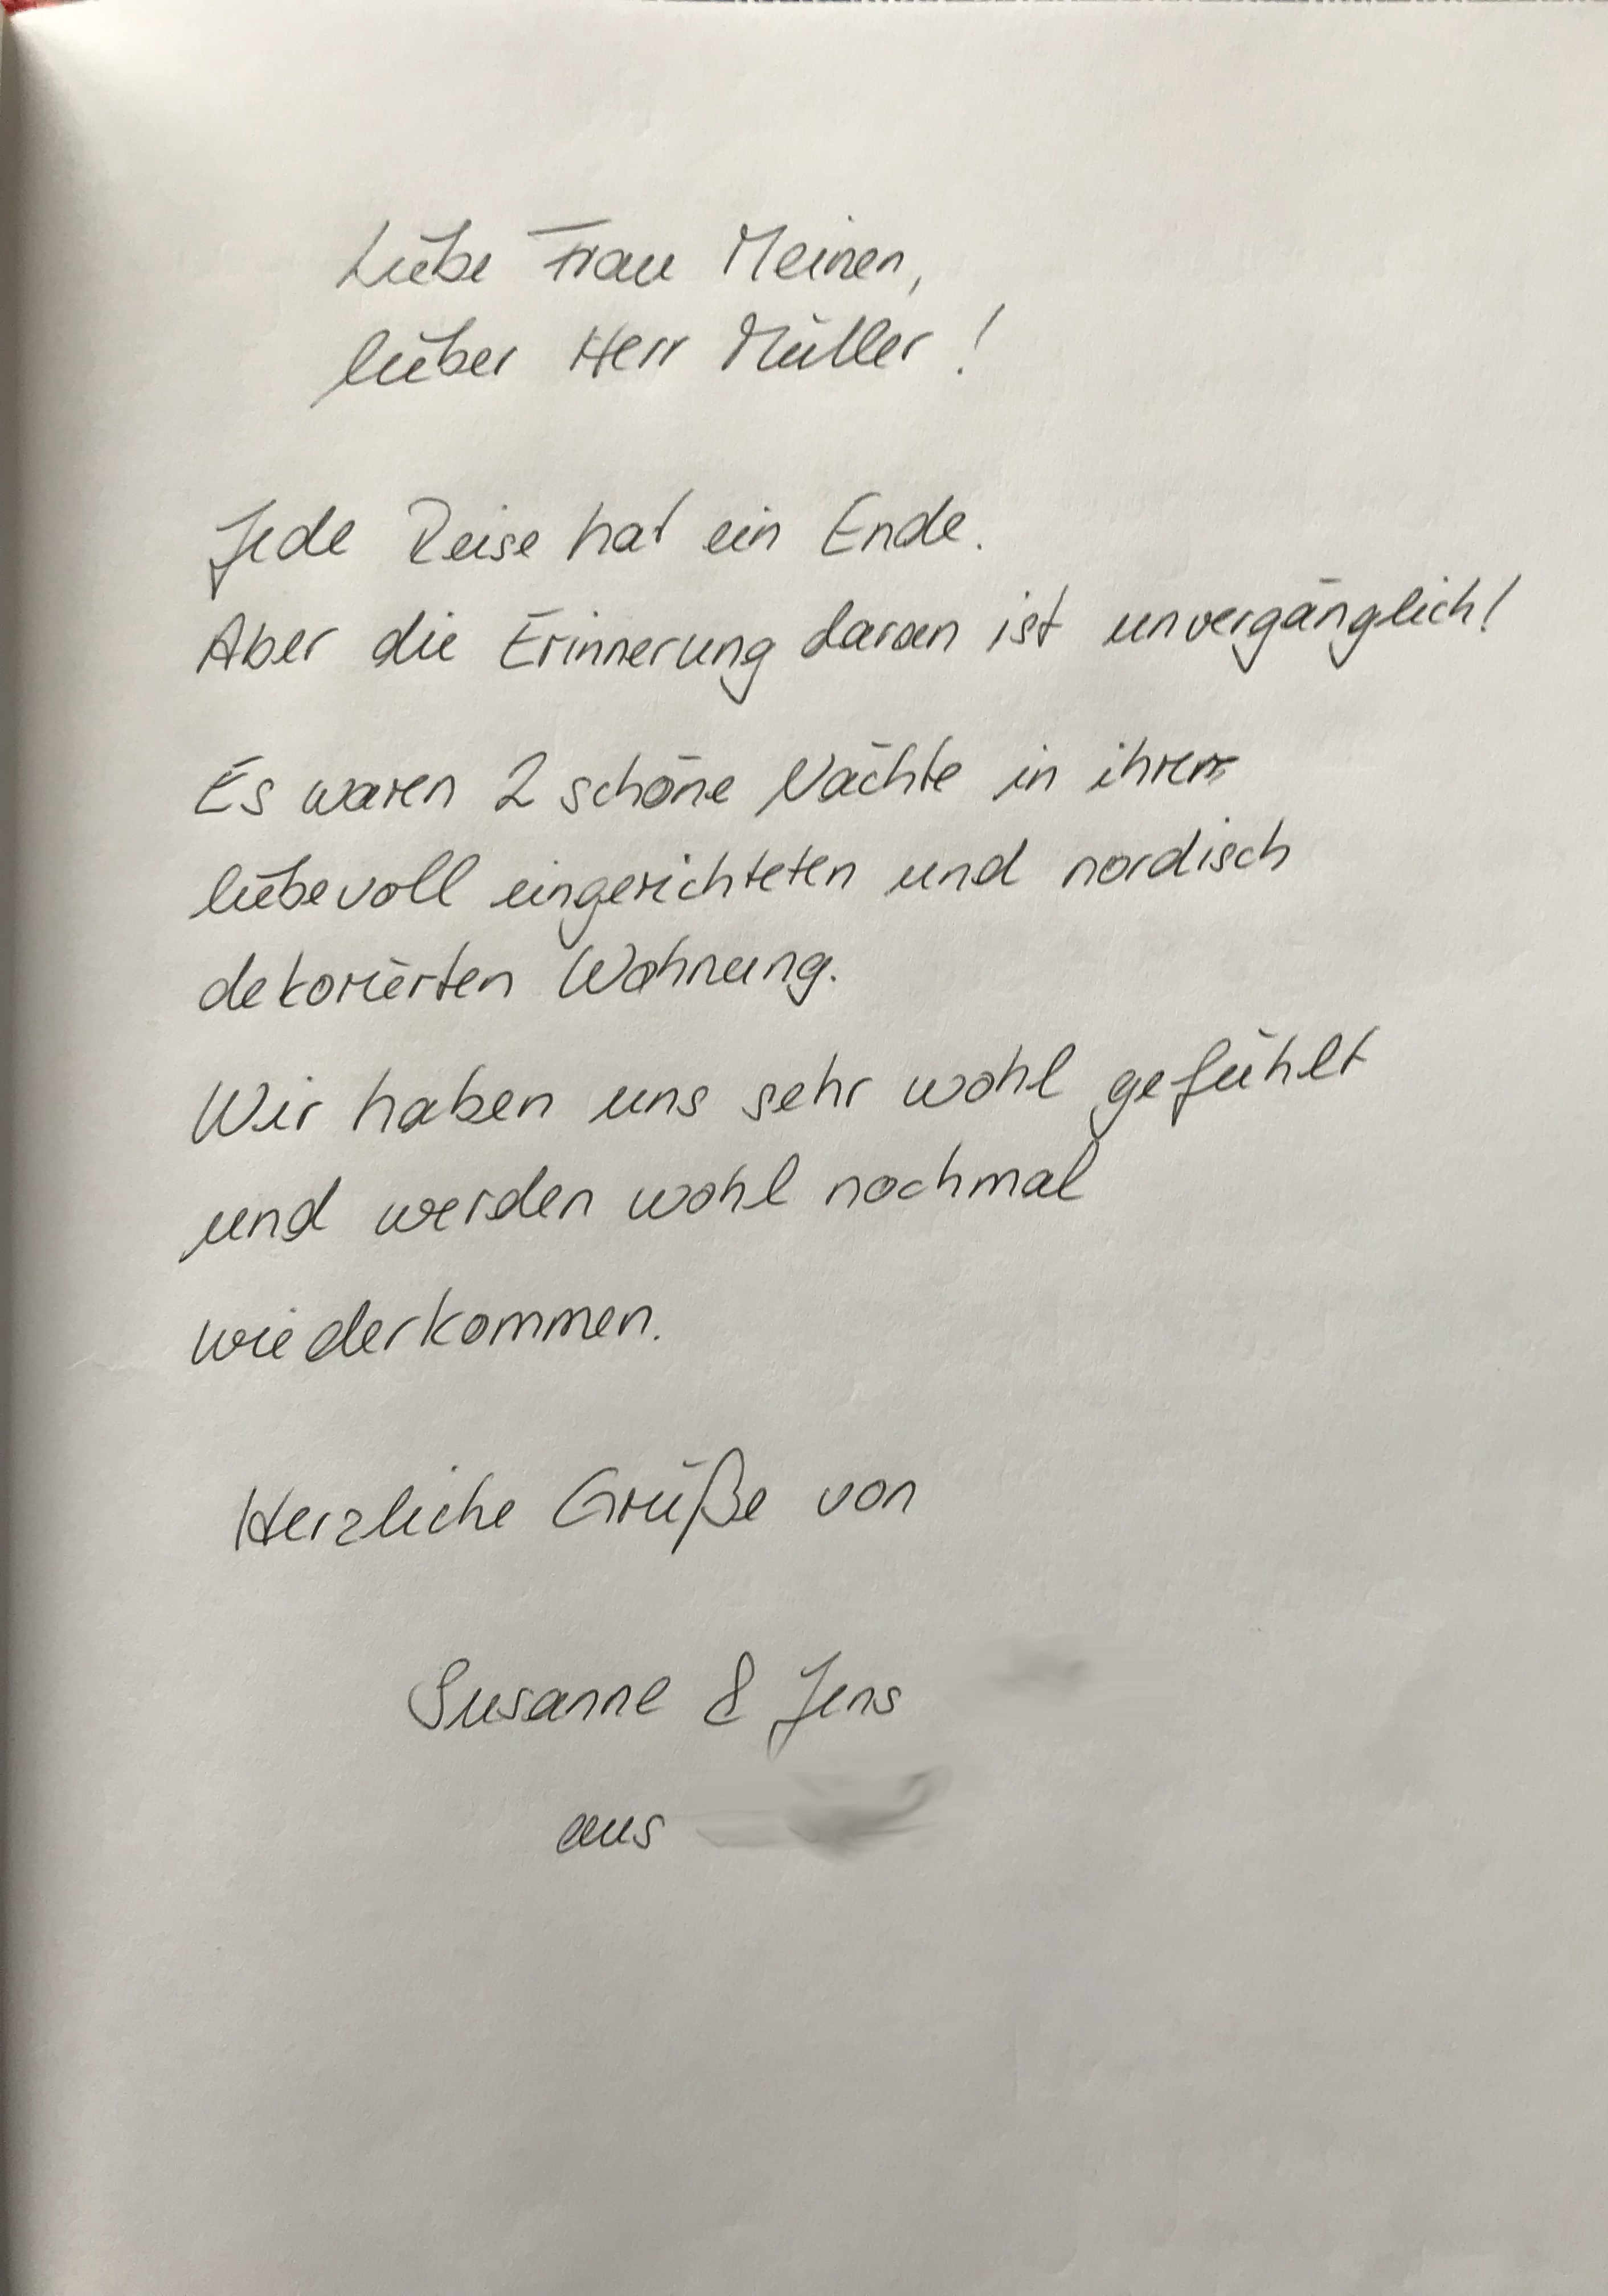 Liebe Frau Meinen,
lieber Herr Müller!
Jede Reise hat ein Ende.
Aber die Erinnerung daran ist unvergänglich!
Es waren 2 schöne Nächte in ihrer
liebevoll eingerichteten und nordisch
dekorierten Wohnung.
Wir haben uns sehr wohl gefühlt
und werden wohl nochmal
wiederkommen.
Herzliche Grüße von
Susanne & Jens
aus